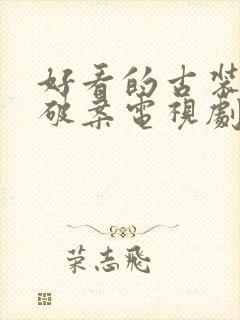 好看的古裝
破案電視劇
荣志飛